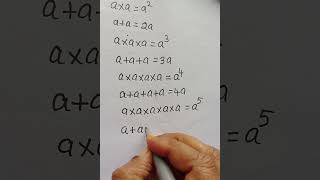 a×a = a²
a+a = 2a
a×a×a = a³
a+a+a = 3a
a×a×a×a = a⁴
a+a+a+a = 4a
a×a×a×a×a = a⁵
a+a